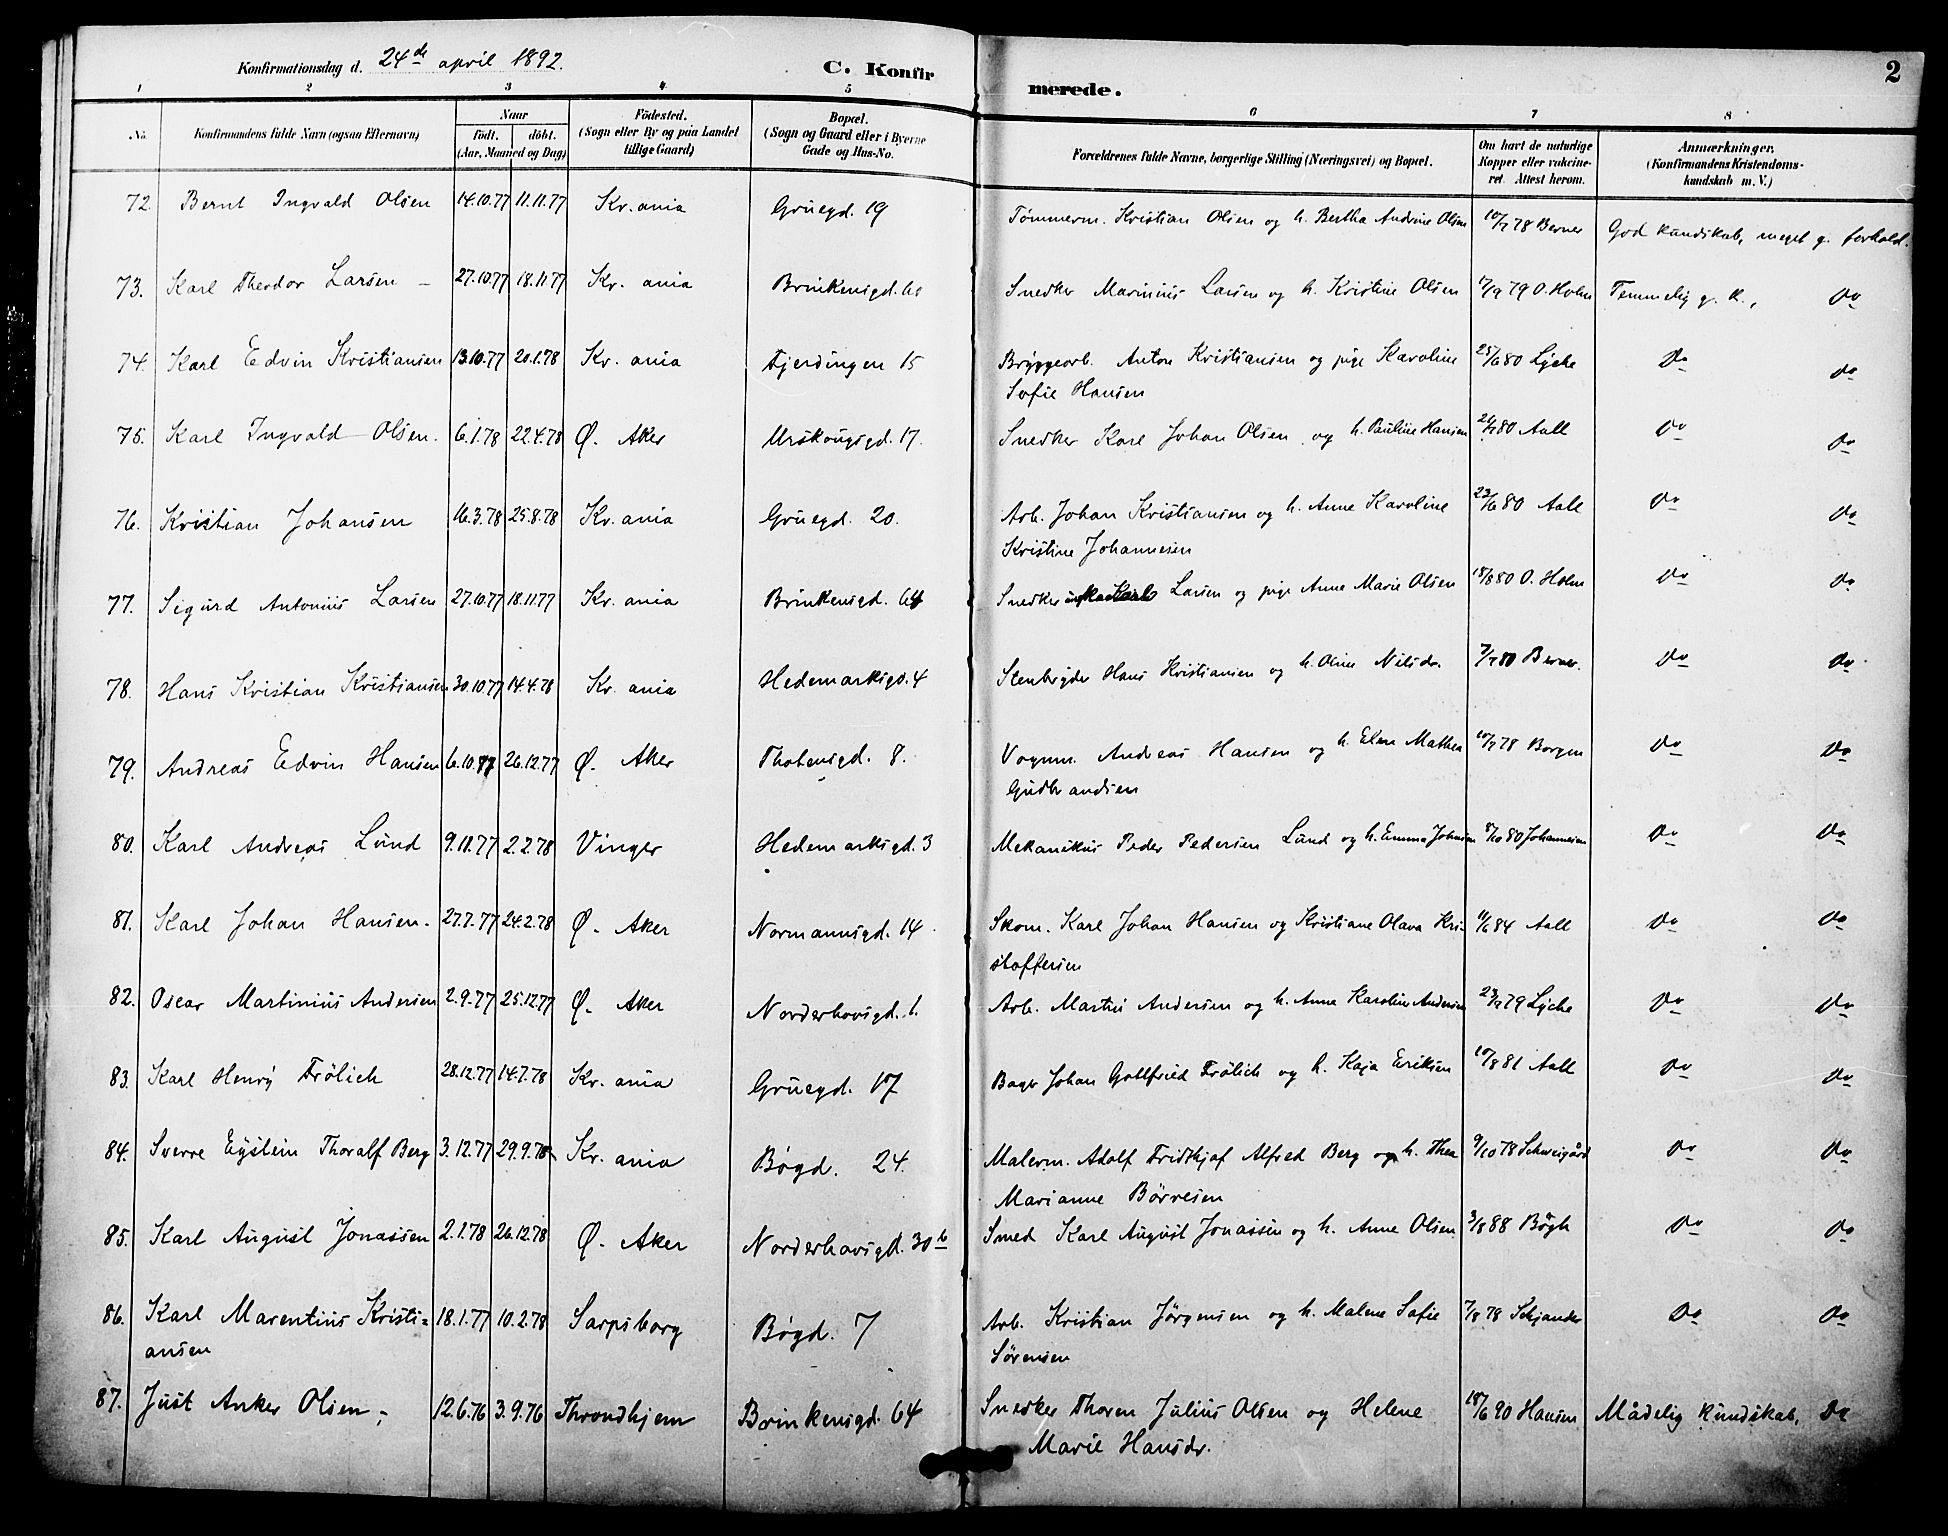 Konfirmationsdag d. 24de april 1892.
C. Konfirmerede.
2
1 2 3 4 5 6 7 8
No. Konfirmandens fulde Navn (ogsaa Efternavn) Naar födt. döbt. (Aar, Maaned og Dag) Födested. (Sogn eller By og paa Landet tillige Gaard) Bopæl. (Sogn og Gaard eller i Byerne Gade og Hus-No. Forældrenes fulde Navne, borgerlige Stilling (Næringsvei) og Bopæl. Om havt de naturlige Kopper eller vaccineret. Attest herom. Anmærkninger. (Konfirmandens Kristendomskundskab m. V.)
72. Bernt Ingvald Olsen 14.10.77 11.11.77 Kr.ania Gruegd. 19 Tømmerm. Kristian Olsen og h. Bertha Andrine Olsen 10/7 78 Berner God kundskab, meget g. forhold.
73. Karl Theodor Larsen 27.10.77 18.11.77 Kr. ania Brinkensgd. Snedker Marinius Larsen og h. Kristine Olsen 17/9 79 O. Holm Temmelig g. k., Do
74. Karl Edvin Kristiansen 13.10.77 20.1.78 Kr. ania Fjerdingen 15 Bryggearb. Anton Kristiansen og pige Karoline 25/6 80 Lyche Do Do
Sofie Hansen
75. Karl Ingvald Olsen. 6.1.78 22.4.78 Ø. Aker Urskougsgd. 17. Snedker Karl Johan Olsen og h. Pauline Hansen 80 Aall Do Do
76. Kristian Johansen 16.3.78 25.8.78 Kr. ania Gruegd. 20. Arb. Johan Kristiansen og h. Anne Karoline 23/6 80 Aall Do Do
Kristine Johannesen
77. Sigurd Antonius Larsen 27.10.77 18.11.77 Kr. ania Brinkensgd. 64 Snedker Larsen og pige Anne Marie Olsen 18/8 80 O. Holm Do Do
78. Hans Kristian Kristiansen 30.10.77 14.4.78 Kr. ania Hedemarksgd. 4 Stenbryder Hans Kristiansen og h. Oline Nilsdr. 7/7 80 Berner. Do Do
79. Andreas Edvin Hansen 6.10.77 26.12.77 Ø. Aker Thotensgd. 8. Vognm. Andreas Hansen og h. Elen Mathea 10/7 78 Borgen Do Do
Gudbrandsen
80. Karl Andreas Lund 9.11.77 2.2.78 Vinger Hedemarksgd. 3 Mekanikus Peder Pedersen Lund og h. Emma Johnsen 8/10 80 Johannesen Do Do
81. Karl Johan Hansen. 27.7.77 24.2.78 Ø. Aker Normannsgd. 14 Skom. Karl Johan Hansen og Kristiane Olava Kri- 11/6 84 Aall Do Do
stoffersen
82. Oscar Martinius Andersen 2.9.77 25.12.77 Ø. Aker Norderhovsgd. Arb. Martin Andersen og h. Anna Karoline Andersen 79 Lyche Do Do
83. Karl Henry Frölich 28.12.77 14.7.78 Kr. ania Gruegd. 17 Bager Johan Gottfried Frölich og h. Kaja Eriksen 10/8 81 Aall Do Do
84. Sverre Eystein Thoralf Berg 3.12.77 29.9.78 Kr. ania Bøgd. 24. Malerm. Adolf Fridthjof Alfred Berg og h. Thea 9/10 78 Schweigård Do Do
Marianne Börresen
85. Karl August Jonassen 2.1.78 26.12.78 Ø. Aker Norderhovsgd. 30b Smed Karl August Jonassen og h. Anne Olsen 3/8 88 Bögh Do Do
86. Karl Marentius Kristi= 18.1.77 10.2.78 Sarpsborg Bøgd. 7 Arb. Kristian Jörgensen og h. Malene Sofie 7/8 78 Schjander Do Do
ansen Sörensen
87. Just Anker Olsen, 12.6.76 3.9.76 Throndhjem Brinkensgd. 64 Snedker Thoren Julius Olsen og Helene 18/6 90 Hansen Mådelig kundskab, Do
Marie Hansdr.